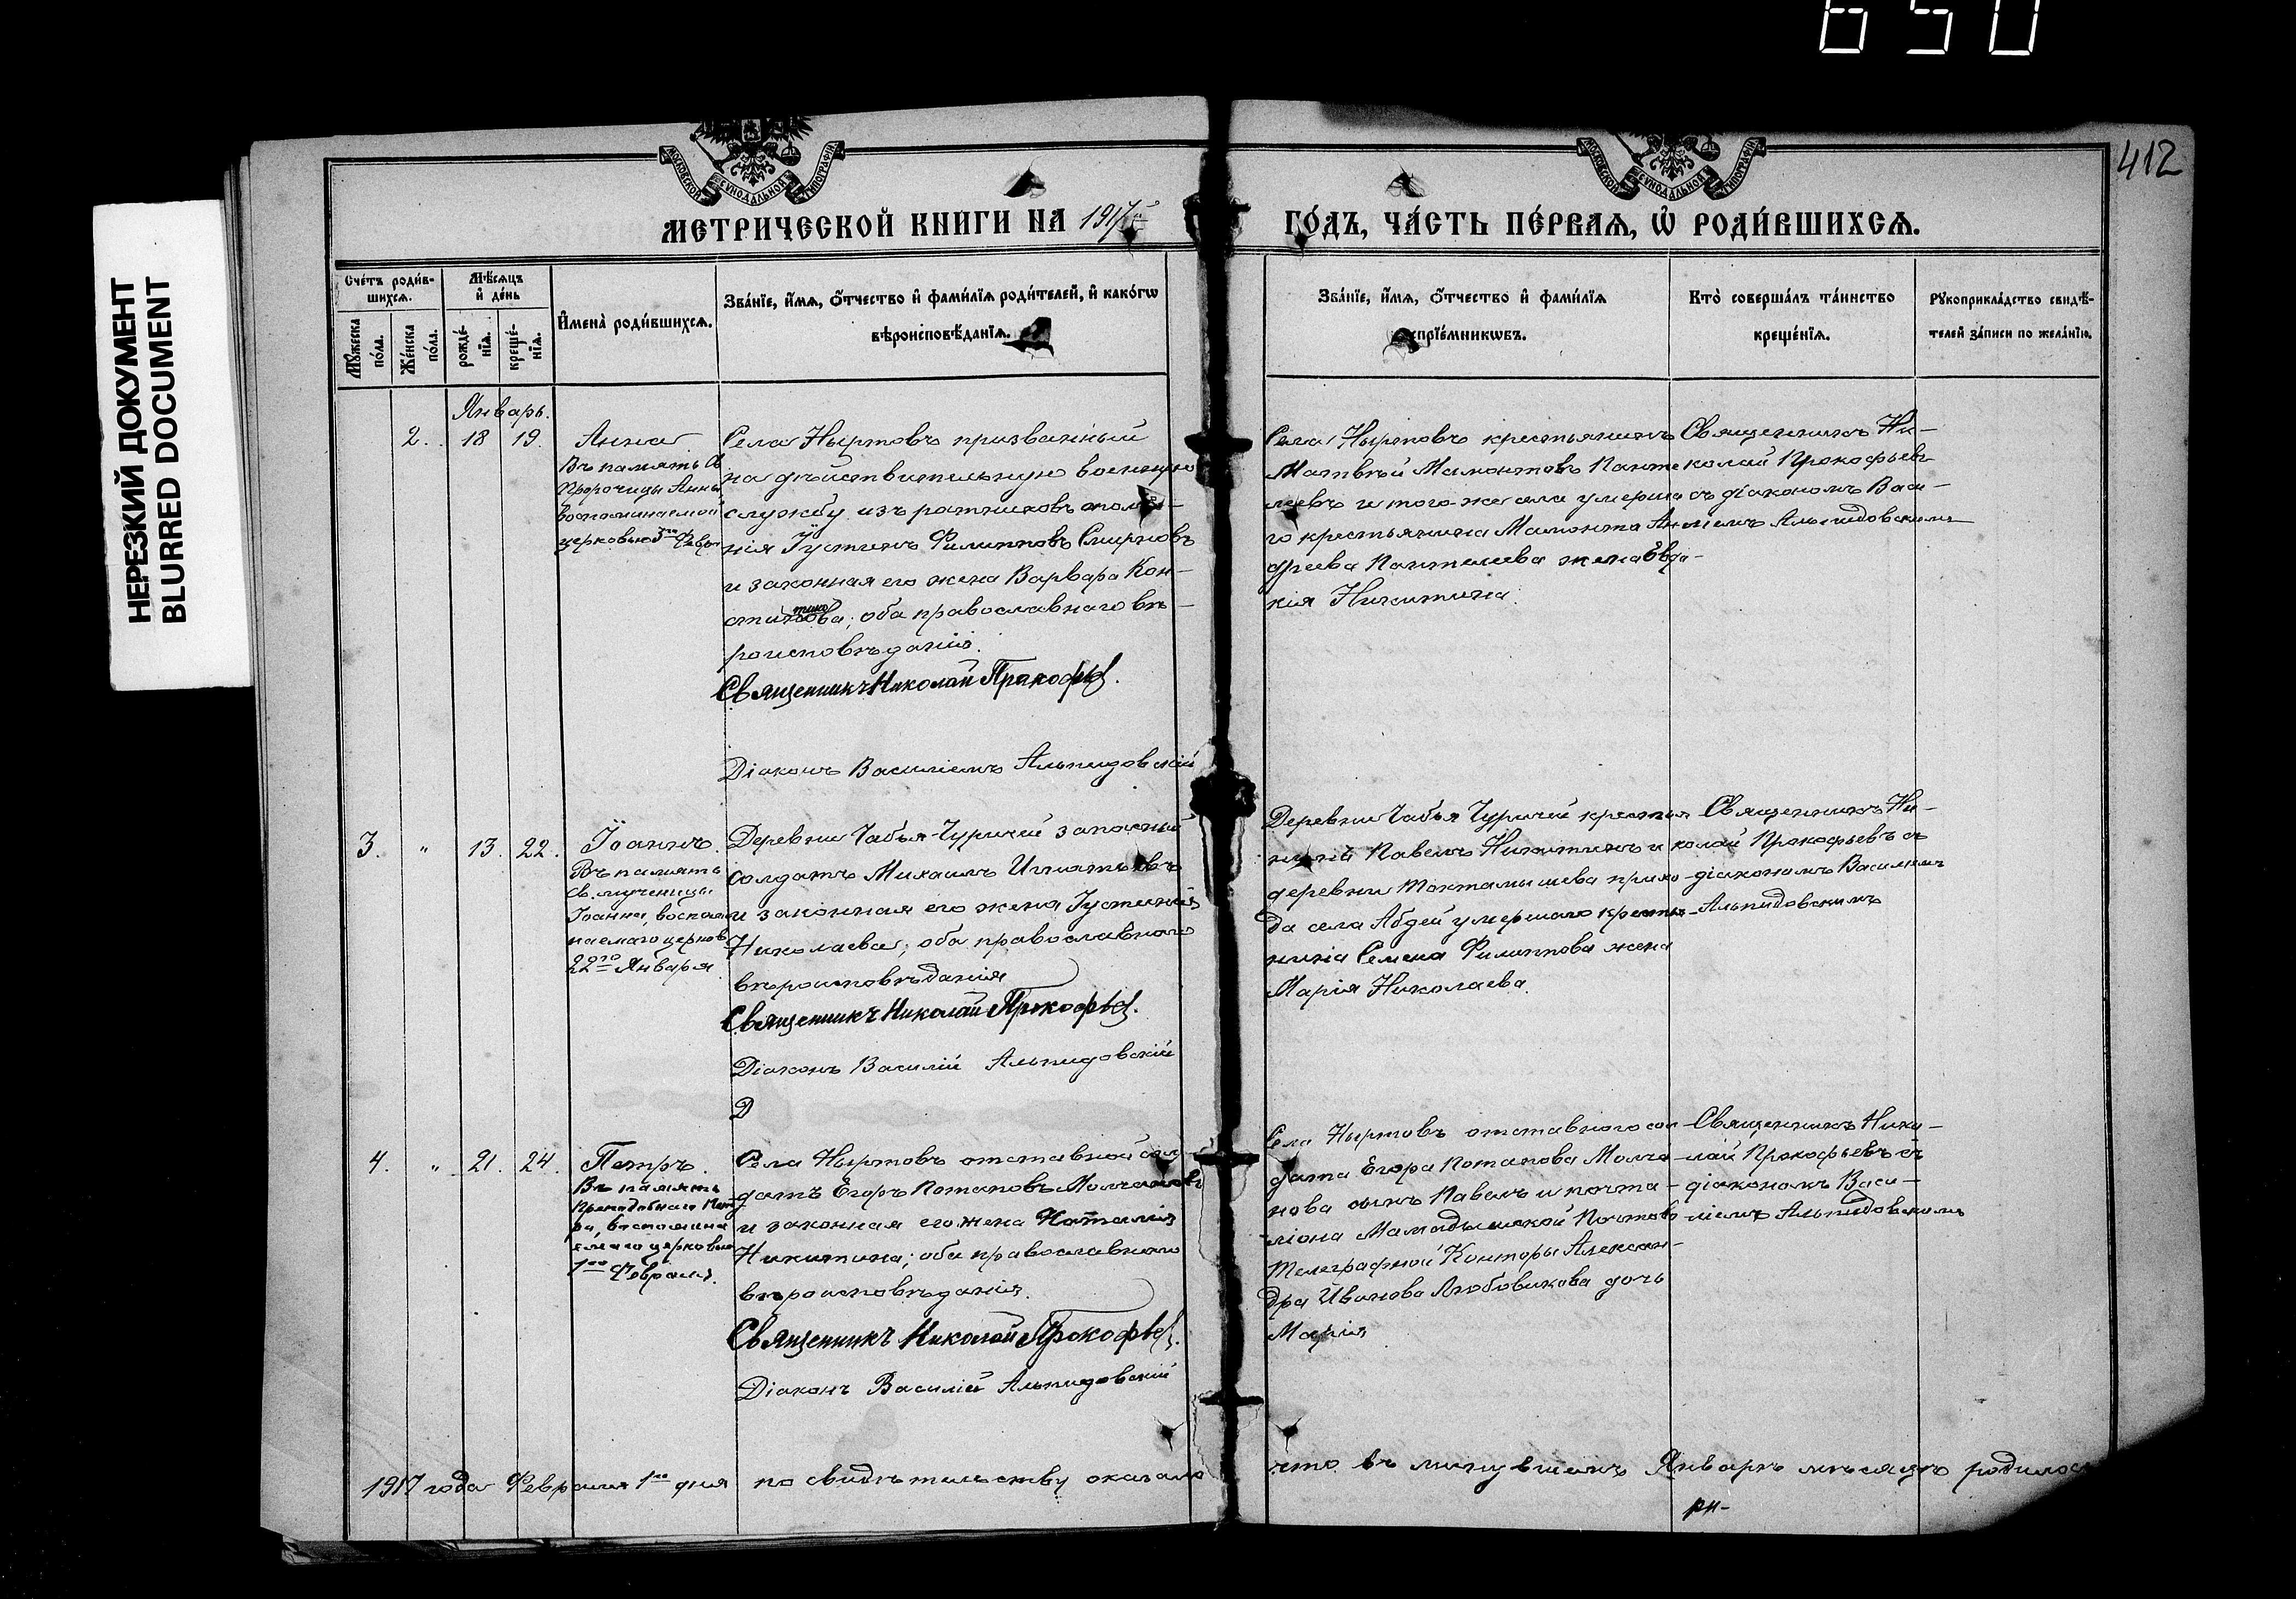 650
412
НЕРЕЗКИЙ ДОКУМЕНТ
BLURRED DOCUMENT
МОСКОВСКОЙ СѴНОДАЛЬНОЙ ТИПОГРАФІИ
МОСКОВСКОЙ СѴНОДАЛЬНОЙ ТИПОГРАФІИ
МЕТРИЧЕСКОЙ КНИГИ НА 1917й
ГО́ДЪ, ЧА́СТЬ ПЕ́РВАѦ, Ѽ РОДИ́ВШИХСѦ.
Сче́тъ роди́в-
шихсѧ.
Мꙋ́жеска
по́ла.
Же́нска
по́ла.
Мѣ́сѧцъ
и҆ де́нь
рожде́-
нїѧ.
креще́-
нїѧ.
И҆мена̀ роди́вшихсѧ.
Зва́нїе, и҆́мѧ, ѻ҆́тчество и҆ фами́лїѧ роди́телей, и҆ како́гѡ
вѣроисповѣ́данїѧ.
Зва́нїе, и҆́мѧ, ѻ҆́тчество и҆ фами́лїѧ
прїе́мникѡвъ.
Кто̀ соверша́лъ та́инство
креще́нїѧ.
Рꙋкоприкла́дство свидѣ́-
телей за́писи по жела́нїю.
Январь.
2. 18 19.
Анна
Въ память Св.
Пророчицы Анны
воспоминаемой
церковью 3го Февр.
Села Ныртовъ призванный
на дѣйствительную военную
службу изъ ратниковъ ополче-
нія Іустинъ Филипповъ Смирновъ
и законная его жена Варвара Кон-
стантинова; оба православнаго вѣ-
роисповѣданія.
Священникъ Николай Прокофьев.
Діаконъ Василіемъ Альпидовскій
Села Ныртовъ крестьянинъ
Матвѣй Мамонтовъ Панте
леевъ и того-же села умерша
го крестьянина Мамонта Ан
дреева Пантелеева жена Евдо-
кія Никитина.
Священникъ Ни-
колай Прокофьевъ
съ діакономъ Васи-
ліемъ Альпидовскимъ
3. " 13. 22.
Іоаннъ.
Въ память
Св. мученицы
Іоанна, воспоми
наемаго церков
22го Января.
Деревни Чабья-Чурчей запасный
солдатъ Михаилъ Игнатьевъ
и законная его жена Іустинія
Николаева; оба православнаго
вѣроисповѣданія
Священникъ Николай Прокофьев.
Діаконъ Василій Альпидовскій
Д
Деревни Чабья Чурчей крестья
нинъ Павелъ Никитинъ и
деревни Токтамышева прихо-
да села Абдей умершаго крестья-
нина Семена Филиппова жена
Марія Николаева.
Священникъ Ни-
колай Прокофьевъ съ
діакономъ Василіемъ
Альпидовскимъ
4. " 21. 24.
Петръ.
Въ память
Преподобнаго Пет
ра, воспомина
емаго церковью
1го Февраля.
Села Ныртовъ отставной сол-
датъ Егоръ Потаповъ Молчановъ
и законная его жена Наталія
Никитина; оба православнаго
вѣроисповѣданія.
Священникъ Николай Прокофьев.
Діаконъ Василій Альпидовскій
Села Ныртовъ отставного сол-
дата Егора Потапова Молча-
нова сынъ Павелъ и почта-
ліона Мамадышской Почтово
Телеграфной Конторы Алексан-
дра Иванова Любовикова дочь
Марія
Священникъ Нико-
лай Прокофьевъ съ
діакономъ Васи-
ліемъ Альпидовскимъ
1917 года Февраля 1го дня по свидѣтельству оказало что въ минувшемъ Январѣ мѣсяцѣ родилось